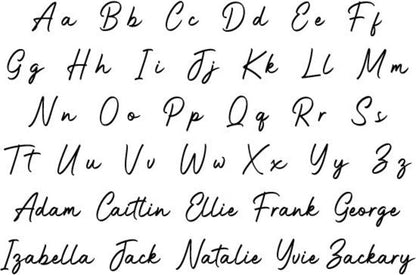 Aa Bb Cc Dd Ee Ff
Gg Hh Ii Jj Kk Ll Mm
Nn Oo Pp Qq Rr Ss
Tt Uu Vv Ww Xx Yy Zz
Adam Caitlin Ellie Frank George
Izabella Jack Natalie Yvie Zackary